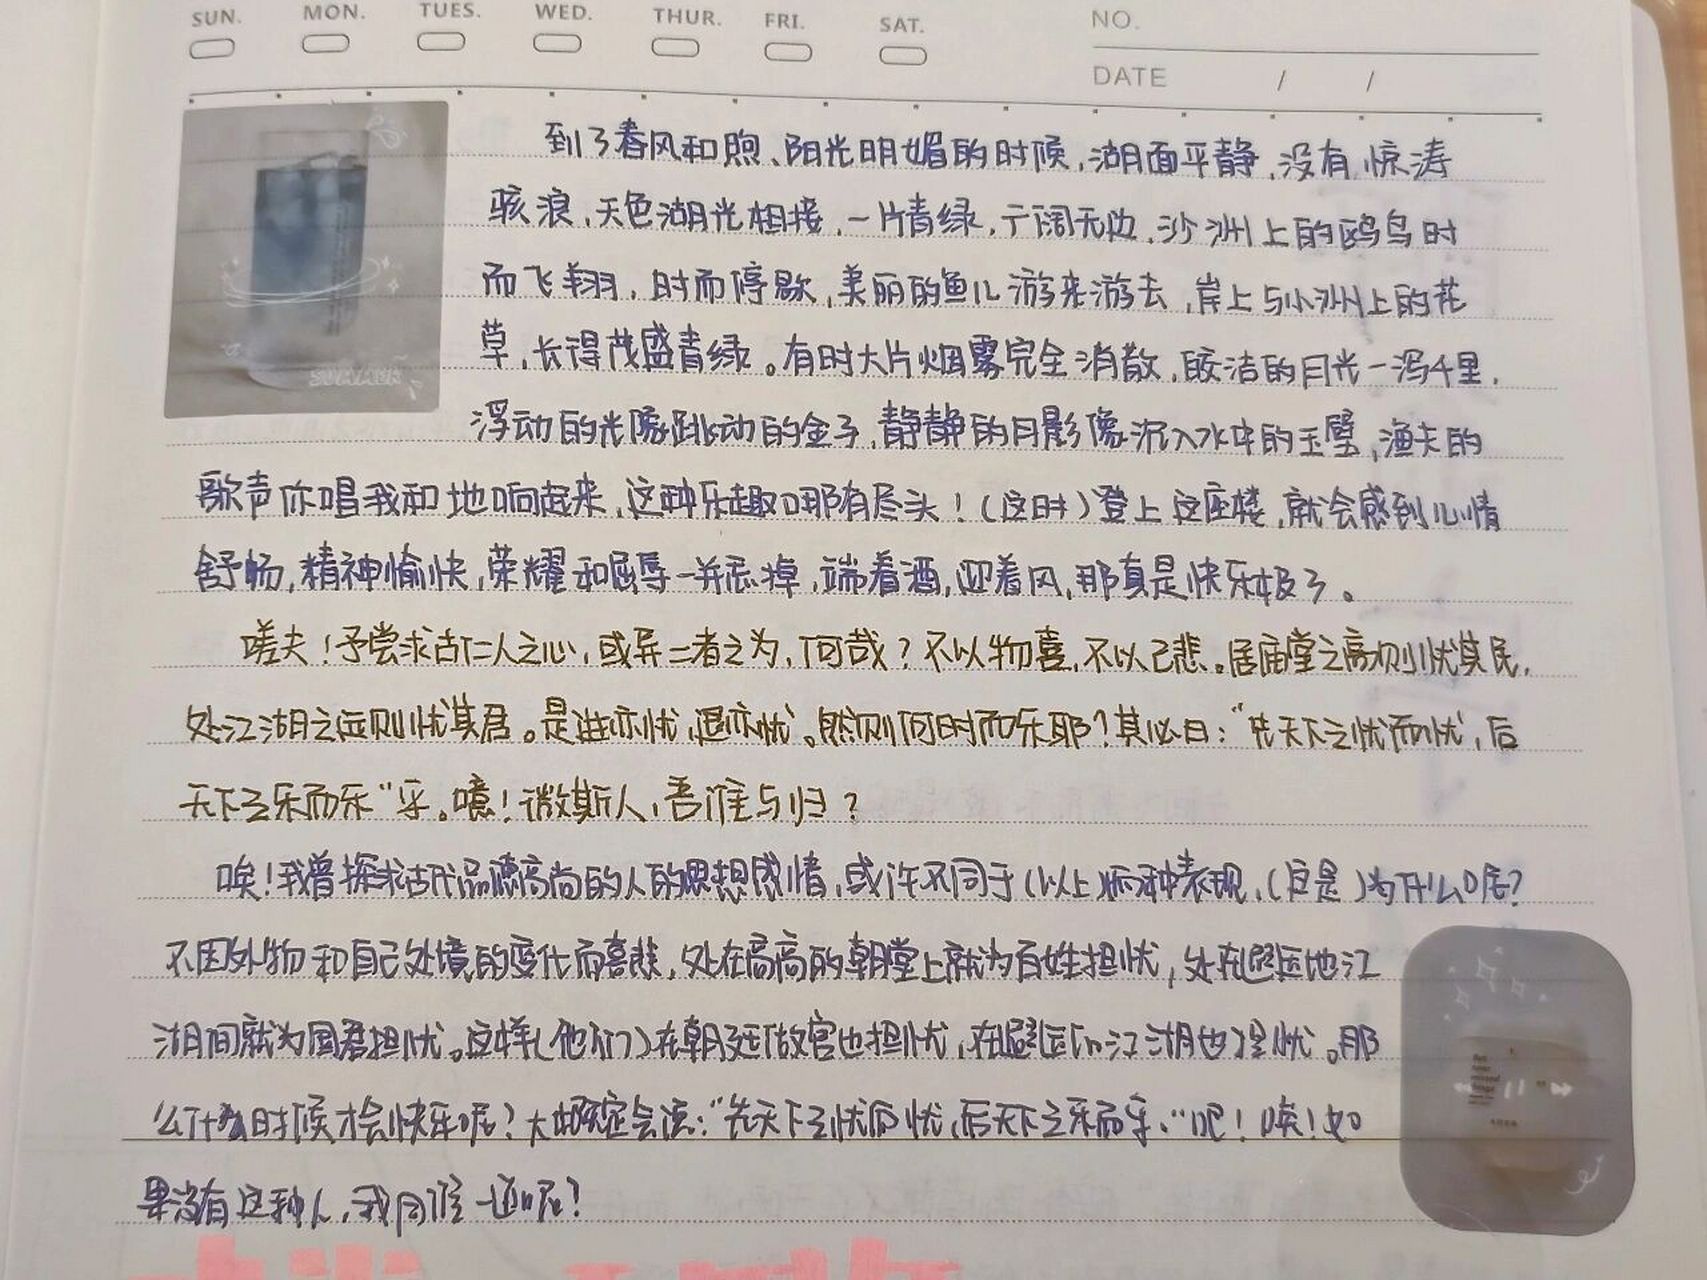 SUN. MON. TUES. WED. THUR. FRI. SAT.
NO.
DATE / /
到了春风和煦、阳光明媚的时候,湖面平静,没有惊涛
骇浪,天色湖光相接,一片青绿,广阔无边,沙洲上的鸥鸟时
而飞翔,时而停歇,美丽的鱼儿游来游去,岸上与小洲上的花
草,长得茂盛青绿。有时大片烟雾完全消散,皎洁的月光一泻千里,
浮动的光像跳动的金子,静静的月影像沉入水中的玉璧,渔夫的
歌声你唱我和地响起来,这种乐趣哪有尽头!(这时)登上这座楼,就会感到心情
舒畅,精神愉快,荣耀和屈辱一并忘掉,端着酒,迎着风,那真是快乐极了。
嗟夫!予尝求古仁人之心,或异二者之为,何哉?不以物喜,不以己悲。居庙堂之高则忧其民,
处江湖之远则忧其君。是进亦忧,退亦忧。然则何时而乐耶?其必曰:“先天下之忧而忧,后
天下之乐而乐”乎。噫!微斯人,吾谁与归?
唉!我曾探求古代品德高尚的人的思想感情,或许不同于(以上)两种表现,(这是)为什么呢?
不因外物和自己处境的变化而喜悲,处在高高的朝堂上就为百姓担忧,处在僻远地江
湖间就为国君担忧。这样(他们)在朝廷做官也担忧,在僻远的江湖也担忧。那
么什么时候才会快乐呢?大概定会说:“先天下之忧而忧,后天下之乐而乐”吧!唉!如
果没有这种人,我同谁一道呢?
SUMMER